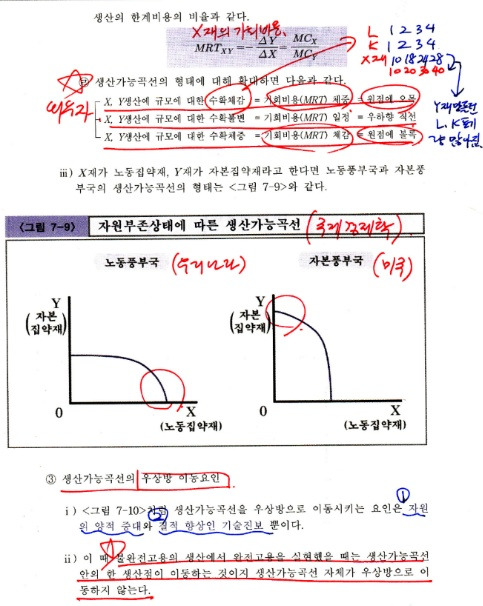 생산의 한계비용의 비율과 같다.
X재의 가치비용.
MRT_XY = -ΔY/ΔX = MC_X/MC_Y
L 1 2 3 4
K 1 2 3 4
X재 10 18 24 28
10 20 30 40
생산가능곡선의 형태에 대해 확대하면 다음과 같다.
X, Y생산에 규모에 대한 수확체감 = 기회비용(MRT) 체증 = 원점에 오목
X, Y생산에 규모에 대한 수확불변 = 기회비용(MRT) 일정 = 우하향 직선
X, Y생산에 규모에 대한 수확체증 = 기회비용(MRT) 체감 = 원점에 볼록
Y재
L, K
iii) X재가 노동집약재, Y재가 자본집약재라고 한다면 노동풍부국과 자본풍
부국의 생산가능곡선의 형태는 <그림 7-9>와 같다.
<그림 7-9> 자원부존상태에 따른 생산가능곡선 (국제경제학)
노동풍부국 (우리나라)
자본풍부국 (미국)
Y
(자본집약재)
0
X
(노동집약재)
Y
(자본집약재)
0
X
(노동집약재)
③ 생산가능곡선의 우상방 이동요인
i) <그림 7-10>처럼 생산가능곡선을 우상방으로 이동시키는 요인은 ① 자원
의 양적 증대와 ② 질적 향상인 기술진보 뿐이다.
ii) 이 때 불완전고용의 생산에서 완전고용을 실현했을 때는 생산가능곡선
안의 한 생산점이 이동하는 것이지 생산가능곡선 자체가 우상방으로 이
동하지 않는다.